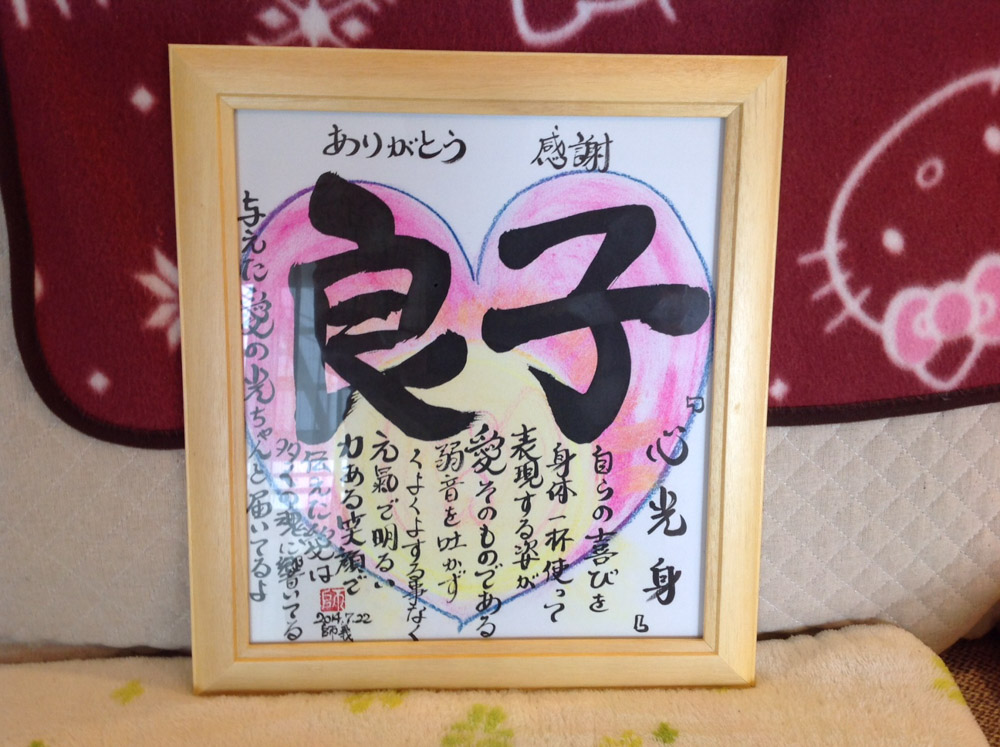 ありがとう　感謝
良子
『心光身』
自らの喜びを
身体一杯使って
表現する姿が
愛そのものである
弱音を吐かず
くよくよする事なく
元氣で明るい
力ある笑顔で
伝えた愛は
多くの魂に響いてる
与えた愛の光ちゃんと届いてるよ
2014.7.22
師義